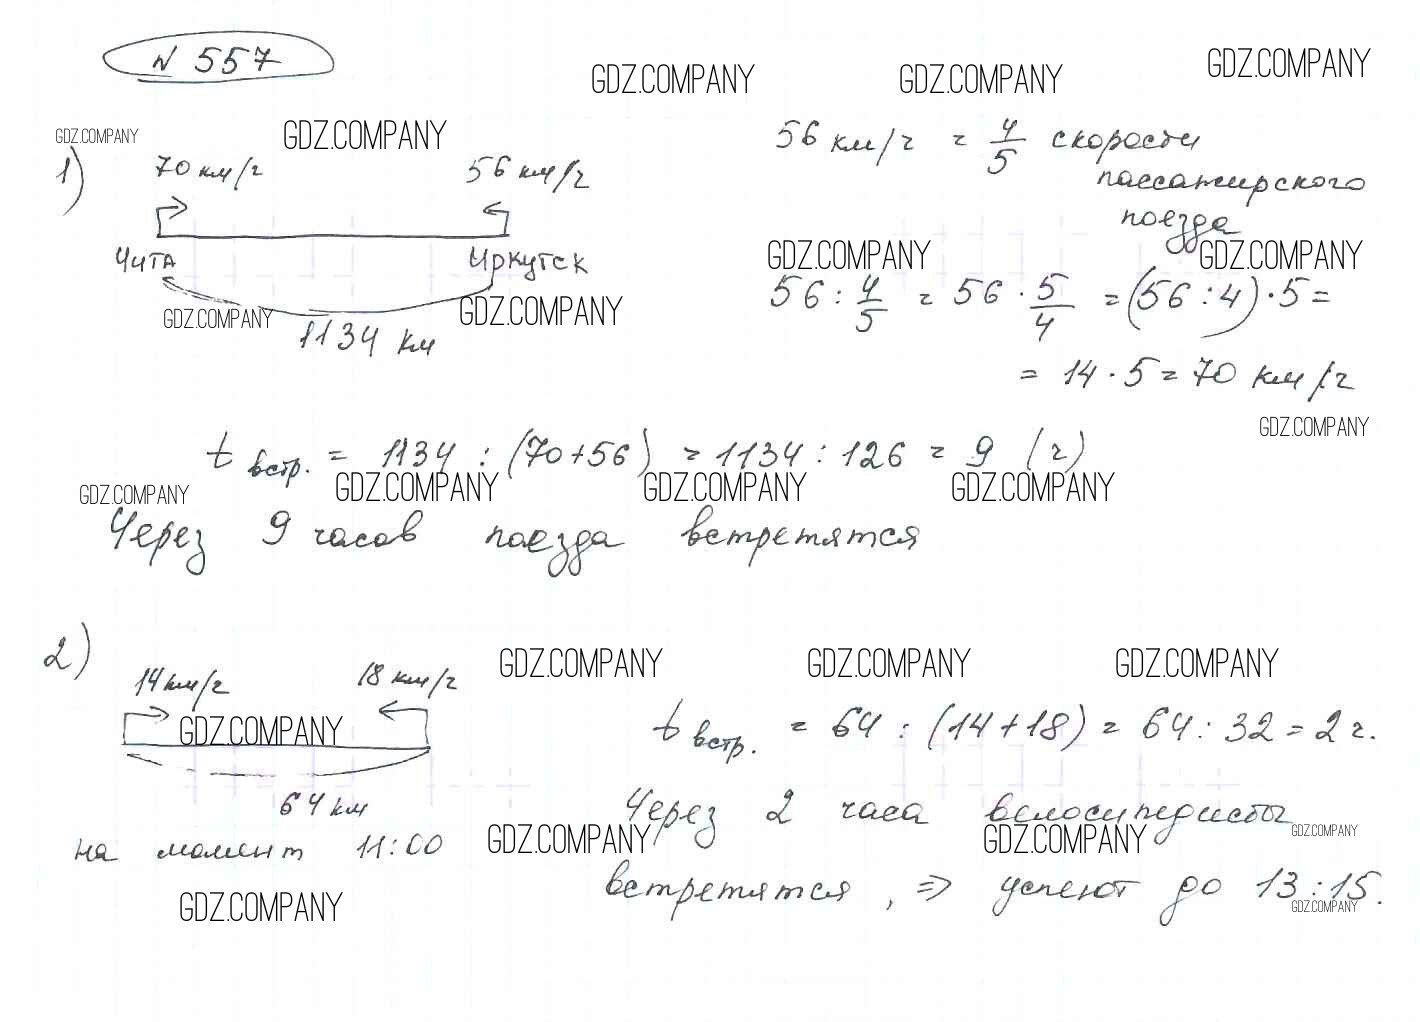 № 557
GDZ.COMPANY GDZ.COMPANY GDZ.COMPANY
GDZ.COMPANY GDZ.COMPANY
1)
70 км/ч 56 км/ч
56 км/ч = 4/5 скорости
пассажирского
поезда
Чита Иркутск
GDZ.COMPANY GDZ.COMPANY
1134 км
GDZ.COMPANY GDZ.COMPANY
56 : 4/5 = 56 · 5/4 = (56 : 4) · 5 =
= 14 · 5 = 70 км/ч
GDZ.COMPANY
t встр. = 1134 : (70+56) = 1134 : 126 = 9 (ч)
GDZ.COMPANY GDZ.COMPANY GDZ.COMPANY GDZ.COMPANY
Через 9 часов поезда встретятся
2)
14 км/ч 18 км/ч
GDZ.COMPANY GDZ.COMPANY GDZ.COMPANY
GDZ.COMPANY
64 км
t встр. = 64 : (14+18) = 64 : 32 = 2 ч.
на момент 11:00
Через 2 часа велосипедисты
GDZ.COMPANY GDZ.COMPANY GDZ.COMPANY
встретятся, ⇒ успеют до 13:15.
GDZ.COMPANY GDZ.COMPANY